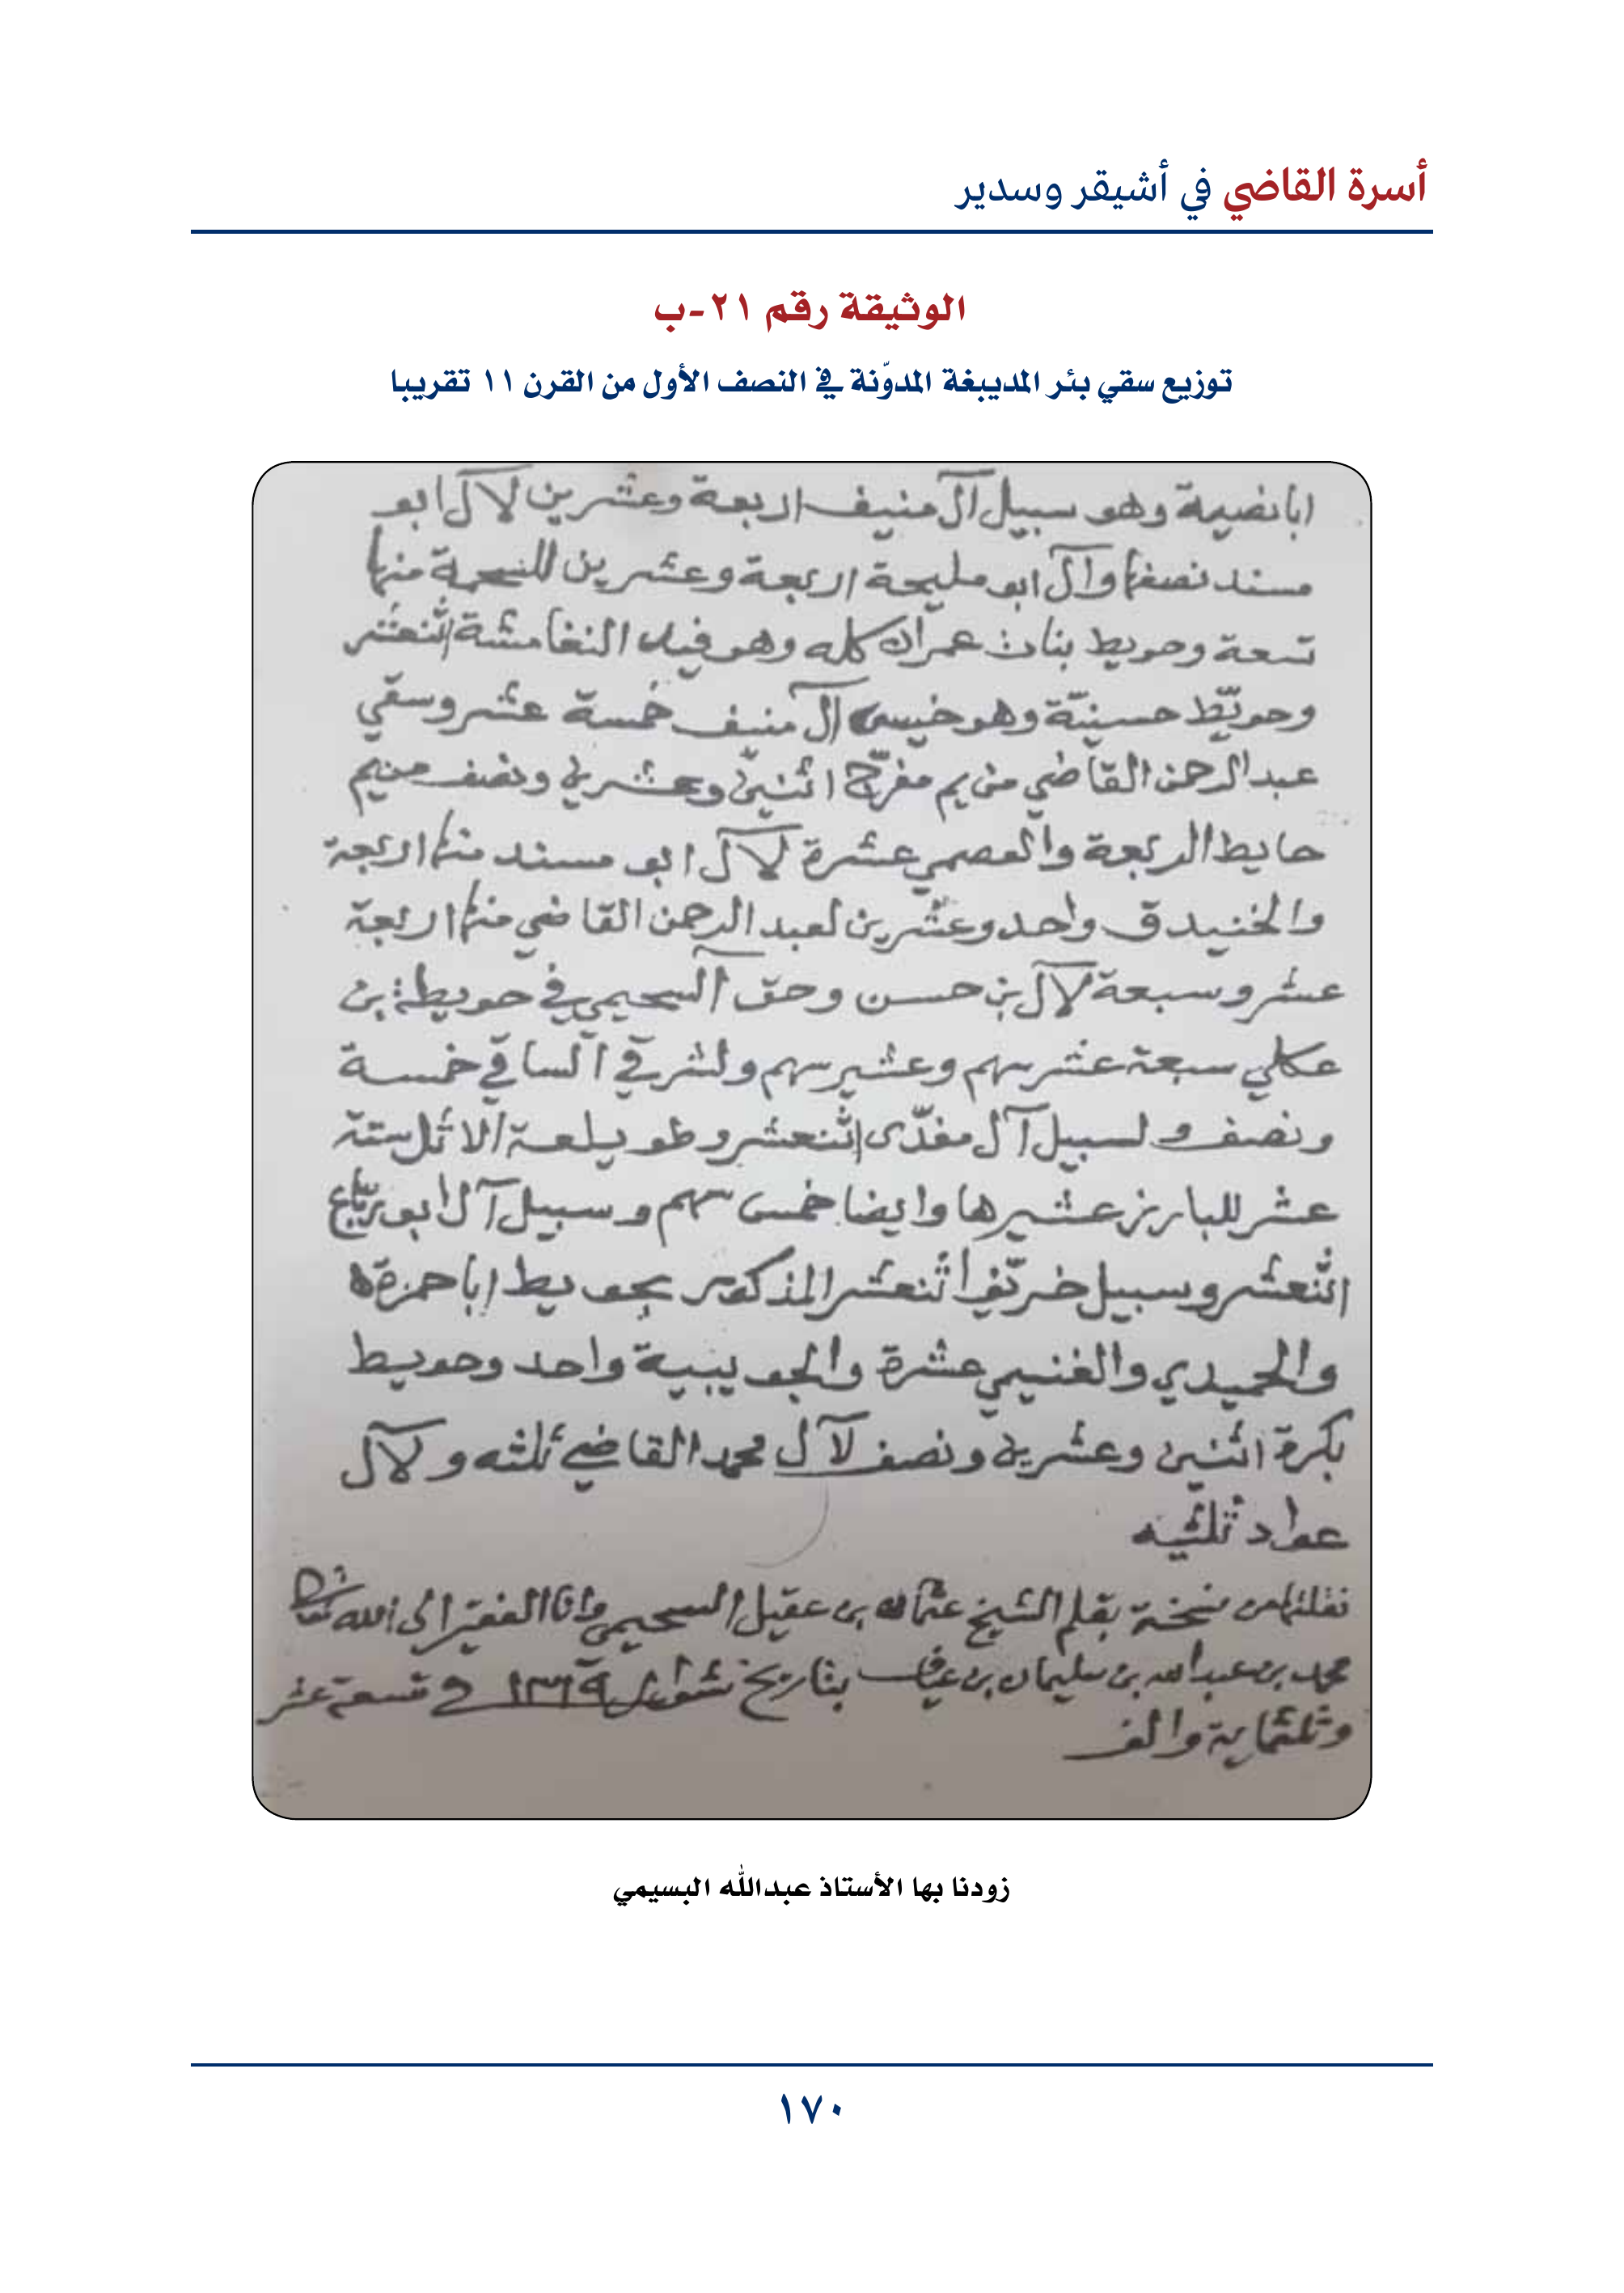 أسرة القاضي في أشيقر وسدير
الوثيقة رقم ٢١-ب
توزيع سقي بئر المديبغة المدوّنة في النصف الأول من القرن ١١ تقريبا
ابا نصية وهو سبيل آل منيف اربعة وعشرين لآل ابو
مسند نصفها وآل ابو مليحة اربعة وعشرين للسحيمة منها
تسعة وحويط بنات عمران كله وهو فيد النغامشة اثنعشر
وحويّط حسينيّة وهو خيس آل منيف خمسة عشر وسقي
عبد الرحمن القاضي من يم مفرّج اثنين وعشرين ونصف من يم
حايط الربعة والعصمي عشرة لآل ابو مسند منها اربعة
والخنيدق واحد وعشرين لعبد الرحمن القاضي منها اربعة
عشر وسبعة لآل بن حسن وحق السحيمي في حويطة بن
عكلي سبعة عشر سهم وعشير سهم ولشرقي الساقي خمسة
ونصف ولسبيل آل مغدّى اثنعشر وطويلعة الاثل ستة
عشر للبارز عشيرها وايضا خمس سهم وسبيل آل ابو ربّاع
اثنعشر وسبيل خريّف اثنعشر المذكور بحويط ابا حمزة
والحميدي والغنيمي عشرة والجويبية واحد وحويط
بكرة اثنين وعشرين ونصف لآل محمد القاضي ثلثه ولآل
عواد ثلثيه
نقلتها من نسخة بقلم الشيخ عثمان بن عقيل السحيمي وانا الفقير الى الله
محمد بن عبدالله بن سليمان بن بتاريخ شوال ١٣١٩ في تسعة عشر
وثلثماية والف
زودنا بها الأستاذ عبدالله البسيمي
١٧٠